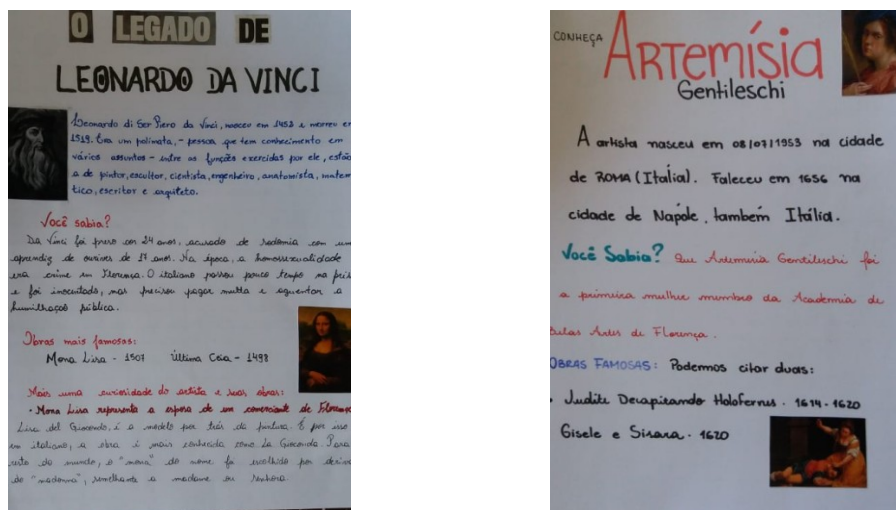 O LEGADO DE
LEONARDO DA VINCI
Leonardo di Ser Piero da Vinci, nasceu em 1452 e morreu em
1519. Era um polímata, - pessoa que tem conhecimento em
vários assuntos - entre as funções exercidas por ele, estão
a de pintor, escultor, cientista, engenheiro, anatomista, matem
tico, escritor e arquiteto.
Você sabia?
Da Vinci foi preso com 24 anos, acusado de sodomia com um
aprendiz de ourives de 17 anos. Na época, a homossexualidade
era crime em Florença. O italiano passou pouco tempo na pris
e foi inocentado, mas precisou pagar multa e aguentar a
humilhação pública.
Obras mais famosas:
Mona Lisa - 1507 Última Ceia - 1498
Mais uma curiosidade do artista e suas obras:
• Mona Lisa representa a esposa de um comerciante de Florença
Lisa del Giocondo, é a modelo por trás da pintura. É por isso
em italiano, a obra é mais conhecida como La Gioconda. Para
resto do mundo, o "mona" do nome foi escolhido por deriva
de "madonna", semelhante a madame ou senhora.
CONHEÇA
ARTEMÍSIA
Gentileschi
A artista nasceu em 08/07/1953 na cidade
de ROMA (Itália). Faleceu em 1656 na
cidade de Napóle, também Itália.
Você Sabia? Que Artemisia Gentileschi foi
a primeira mulher membro da Academia de
Belas Artes de Florença.
OBRAS FAMOSAS: Podermos citar duas:
• Judite Decapitando Holofernes - 1614-1620
Gisele e Sisara - 1620